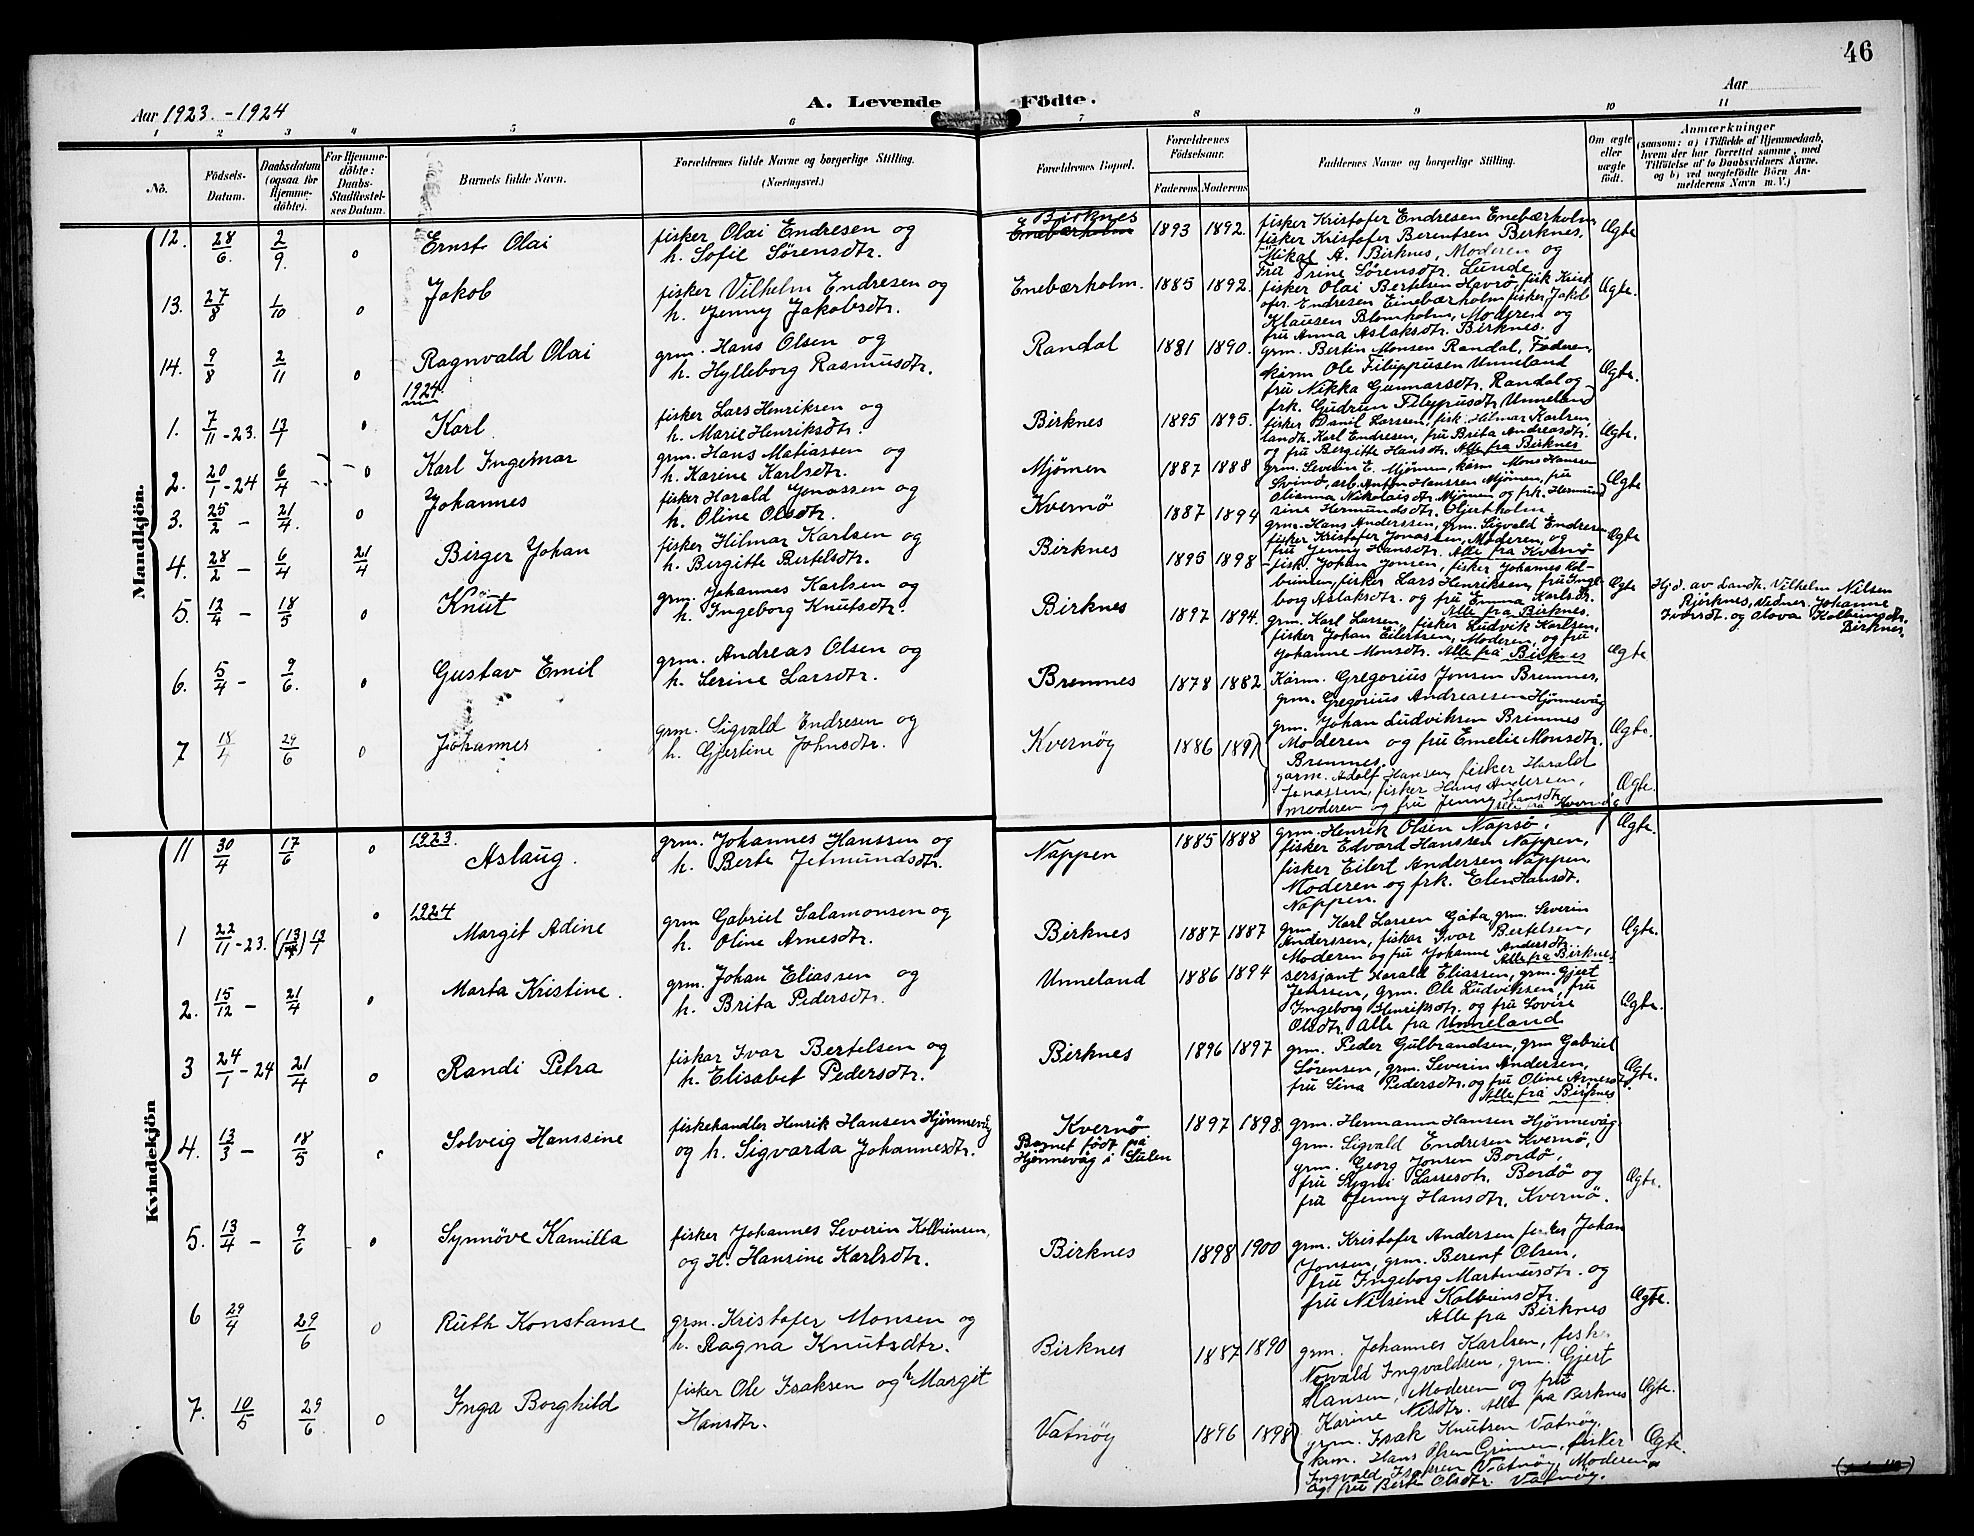 46
Aar 1923. - 1924
A. Levende Födte.
Aar
1 2 3 4 5 6 7 8 9 10 11
No.
Födsels-Datum.
Daabsdatum (ogsaa for Hjemmedöbte).
For Hjemmedöbte: Daabs-Stadfæstelses Datum.
Barnets fulde Navn.
Forældrenes fulde Navne og borgerlige Stilling. (Næringsvei.)
Forældrenes Bopæl.
Forældrenes Födselsaar.
Faderens Moderens
Faddernes Navne og borgerlige Stilling.
Om ægte eller uægte födt.
Anmærkninger (saasom: a) i Tilfælde af Hjemmedaab, hvem der har forrettet samme, med Tilföielse af to Daabsvidners Navne. og b) ved uægtefödte Börn Anmelderens Navn m. V.)
Mandkjön.
12. 28/6. 2/9. 0 Ernst Olai
fisker Olai Endresen og
h. Sofie Sörensdtr.
Birknes
Enebærholm
1893 1892.
fisker Kristofer Endresen Enebærholm
fisker Kristofer Berentsen Birknes,
Mikal A. Birknes, Moderen og
Fru Trine Sörensdtr. Lunde
Ægte
13. 27/8 1/10 0 Jakob
fisker Vilhelm Endresen og
h. Jenny Jakobsdtr.
Enebærholm. 1885 1892.
fisker Olai Bertelsen Havrö, fisk Krist
ofer Endresen Einebærholm fisker Jakob
Klausen Blomholm, Moderen og
fru Anna Aslaksdtr. Birknes.
Ægte.
14. 9/8 2/11 0 Ragnvald Olai
grm. Hans Olsen og
h. Hylleborg Rasmusdtr.
Randal 1881 1890.
grm. Bertin Monsen Randal, Faderen,
kårm Ole Filippusen Unneland
fru Nikka Gunnarsdtr. Randal og
frk. Gudrun Filippusdtr. Unneland
Ægte.
1924
1. 7/11 - 23. 13/1 0 Karl
fisker Lars Henriksen og
h. Marie Henriksdtr.
Birknes 1895 1895.
fisker Danil Larsen, fisk. Hilmar Karlsen,
landh. Karl Endresen, fru Brita Andreasdtr.
og fru Bergitte Hansdtr. Alle fra Birknes
Ægte.
2. 20/1 - 24 6/4 0 Karl Ingemar
grm. Hans Matiassen og
h. Karine Karlsdtr.
Mjömen 1887 1888
grm. Severin E. Mjömen, kårm Mons Hanssen
Svind, arb. Anton Hanssen Mjömen, fru
Olianna Nikolaisdtr. Mjömen og frk. Hermund
sine Hermundsdtr. Gjertholm
Ægte
3. 25/2 - 21/4. 0 Johannes
fisker Harald Jonassen og
h. Oline Olsdtr.
Kvernö 1887 1894
grm. Hans Anderssen, grm. Sigvald Endresen
fisker Kristofer Jonassen, Moderen, og
fru Jenny Hansdtr. Alle fra Kvernö
Ægte
4. 28/2 - 6/4 21/4 Birger Johan
fisker Hilmar Karlsen og
h. Bergitte Bertelsdtr.
Birknes 1895 1898
fisk. Johan Jonsen, fisker Johannes Kol-
beinsen, fisker Lars Henriksen, fru Inge-
borg Aslaksdtr. og fru Emma Karlsdtr.
Alle fra Birknes.
Ægte
Hjd. av Landh. Vilhelm Nilsen
Birknes, Vidner: Johanne
Ivarsdt. og Olova Kolbeinsdtr.
Birknes.
5. 12/4 - 18/5 0 Knut
grm. Johannes Karlsen og
h. Ingeborg Knutsdtr.
Birknes 1897 1894.
grm. Karl Larsen, fisker Ludvik Karlsen,
fisker Johan Eilertsen, Moderen, og fru
Johanne Monsdtr. Alle fra Birknes
Ægte
6. 5/4 - 9/6. 0 Gustav Emil
grm. Andreas Olsen og
h. Serine Larsdtr.
Bremnes 1878 1882
Kårm. Gregorius Jonsen Bremnes,
grm. Gregorius Andreassen Hjönnevåg
grm. Johan Ludviksen Brimnes
Moderen og fru Emelie Monsdtr.
Bremnes.
Ægte.
7 18/4 29/6 0 Johannes
grm. Sigvald Endresen og
h. Gjertine Johnsdtr.
Kvernöy 1886 1891
garm. Adolf Hansen, fisker Harald
Jonassen, fisker Hans Andersen,
moderen og fru Jenny Hansdtr.
alle fra Kvernö
Ægte.
Kvindekjön
1923.
11 30/4 17/6 0 Aslaug.
grm. Johannes Hanssen og
h. Berte Jetmundsdtr.
Nappen 1885 1888
grm. Henrik Olsen Napsö,
fisker Edvard Hanssen Nappen,
fisker Eilert Andersen Nappen
Moderen og frk. Elen Hansdt.
Nappen.
Ægte.
1924
1 22/11 - 23. (13/4) 13/1 0 Margit Adine
grm Gabriel Salamonsen og
h. Oline Arnesdtr.
Birknes 1887 1887
grm. Karl Larsen Göta, grm. Severin
Anderssen, fisker Ivar Bertelsen,
Moderen og fru Johanne Andersdt.
Alle fra Birknes
Ægte.
2. 15/12 - 21/4 0 Marta Kristine.
grm. Johan Eliassen og
h. Brita Pedersdtr.
Unneland 1886 1894
sersjant Harald Eliassen, grm. Gjert
Jenssen, Grm. Ole Ludvikssen, fru
Ingeborg Henriksdtr. og fru Lovise
Olsdtr. Alle fra Unneland
Ægte.
3 24/1 - 24 21/4 0 Randi Petra
fisker Ivar Bertelsen og
h. Elisabet Pedersdtr.
Birknes 1896 1897
grm. Peder Gulbrandsen, grm Gabriel
Sörensen, grm. Severin Andersen,
fru Sina Pedersdtr. og fru Oline Arnesdtr.
Alle fra Birknes
Ægte.
4. 13/3 - 18/5 0 Solveig Hanssine
fiskehandler Henrik Hansen Hjönnevåg
og h. Sigvarda Johannesdtr.
Kvernö
Barnet födt på
Hjönnevåg i Sulen
1897 1898
grm. Hermann Hansen Hjönnevåg
grm. Sigvald Endresen Kvernö,
grm. Georg Jonsen Bordö,
fru Sygni Larsesdtr. Bordö og
fru Jenny Hansdtr. Kvernö.
Ægte.
5. 13/4 - 9/6 0 Synnöve Kamilla
fisker Johannes Severin Kolbeinsen,
og H. Hansine Karlsdtr.
Birknes 1898 1900
grm. Kristofer Andersen fisker Johan
Jonsen, grm. Berent Olsen,
fru Ingeborg Martinusdtr. og
fru Nilsine Kolbeinsdtr.
Alle fra Birknes
Ægte.
6 29/4 29/6 0 Ruth Konstanse
grm. Kristofer Monsen og
h. Ragna Knutsdtr.
Birknes 1887 1890
grm. Johannes Karlsen, fisk.
Norvald Ingvaldsen, grm. Gjert
Hansen, Moderen og fru
Karine Nilsdtr. Alle fra Birknes
Ægte.
7. 10/5 29/6 0 Inga Borghild
fisker Ole Isaksen og h Margit
Hansdtr.
Vatnöy 1896 1898
grm. Isak Knutsen Vatnöy,
krm. Hans Olsen Grimen, fisker
Ingvald Isaksen Vatnöy, Moderen
og fru Berte Olsdtr. Vatnöy.
Ægte.